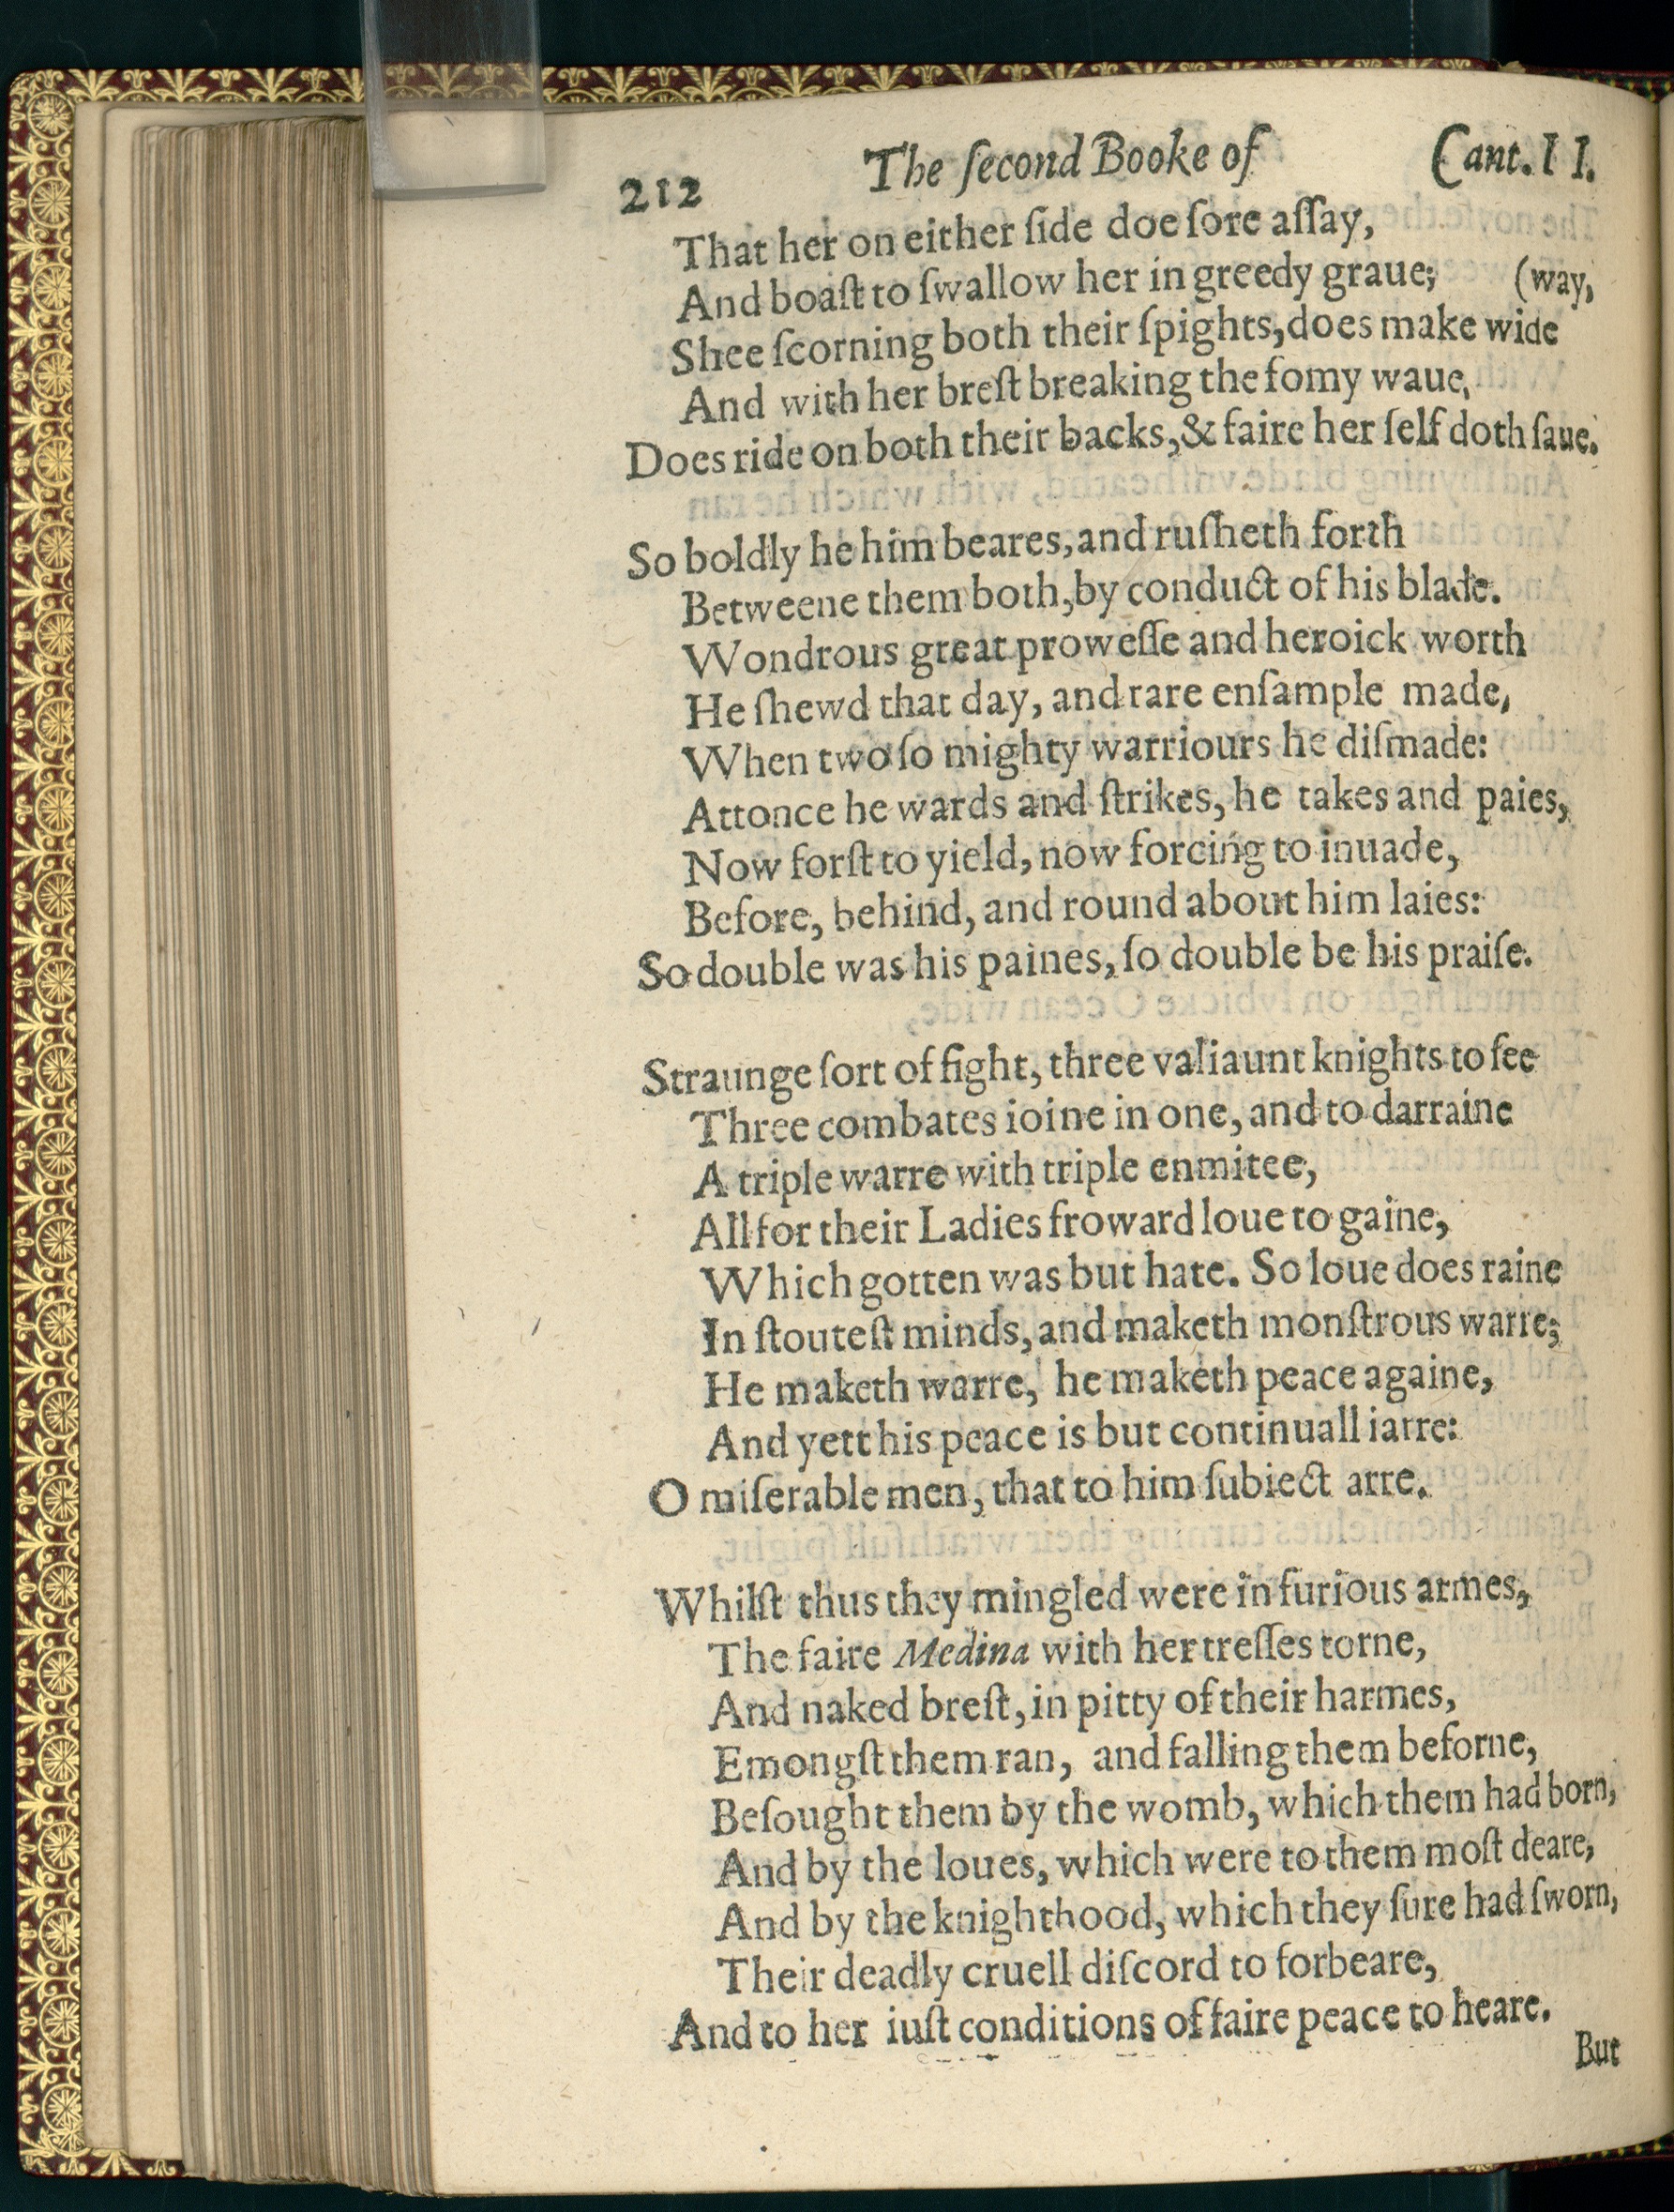 212 The ſecond Booke of Cant. I I.
That her on either ſide doe ſore aſſay,
And boaſt to ſwallow her in greedy graue; (way,
Shee ſcorning both their ſpights, does make wide
And with her breſt breaking the fomy waue,
Does ride on both their backs, & faire her ſelf doth ſaue.
So boldly he him beares, and ruſheth forth
Betweene them both, by conduct of his blade.
Wondrous great proweſſe and heroick worth
He ſhewd that day, and rare enſample made,
When two ſo mighty warriours he diſmade:
Attonce he wards and ſtrikes, he takes and paies,
Now forſt to yield, now forcing to inuade,
Before, behind, and round about him laies:
So double was his paines, ſo double be his praiſe.
Straunge ſort of fight, three valiaunt knights to ſee
Three combates ioine in one, and to darraine
A triple warre with triple enmitee,
All for their Ladies froward loue to gaine,
Which gotten was but hate. So loue does raine
In ſtouteſt minds, and maketh monſtrous warre;
He maketh warre, he maketh peace againe,
And yett his peace is but continuall iarre:
O miſerable men, that to him ſubiect arre.
Whilſt thus they mingled were in furious armes,
The faire Medina with her treſſes torne,
And naked breſt, in pitty of their harmes,
Emongſt them ran, and falling them beforne,
Beſought them by the womb, which them had born,
And by the loues, which were to them moſt deare,
And by the knighthood, which they ſure had ſworn,
Their deadly cruell diſcord to forbeare,
And to her iuſt conditions of faire peace to heare.
But